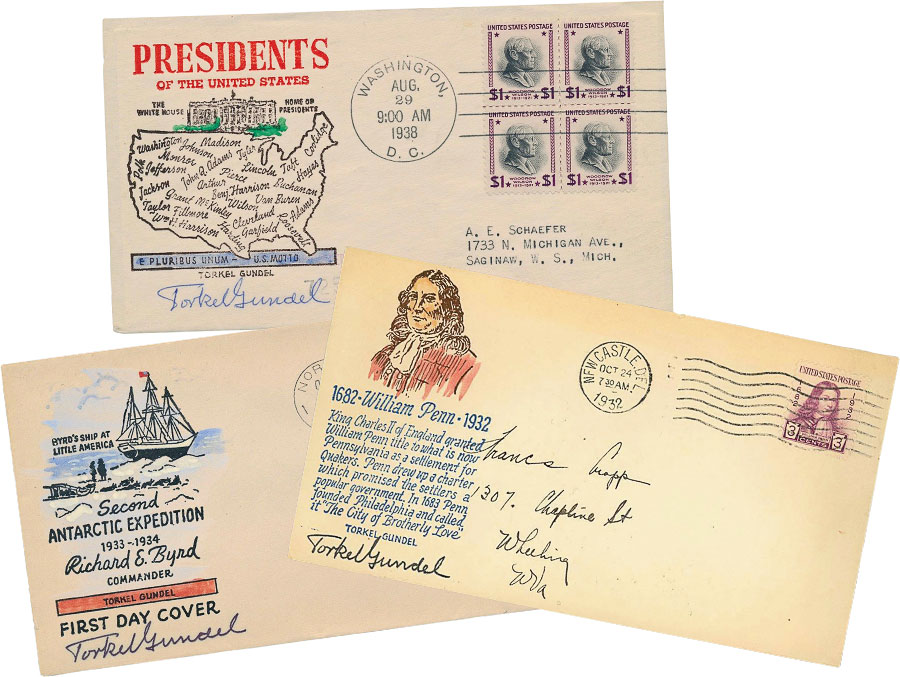 PRESIDENTS
OF THE UNITED STATES
THE WHITE HOUSE
HOME OF PRESIDENTS
Washington
Madison
Johnson
Monroe
Tyler
Coolidge
Polk
Jefferson
John Q. Adams
Lincoln
Taft
Hayes
Pierce
Jackson
Arthur
Benj. Harrison
Buchanan
Grant
McKinley
Wilson
Van Buren
Taylor
Fillmore
Cleveland
Adams
Wm H. Harrison
Harding
Garfield
Roosevelt
E PLURIBUS UNUM – U.S. MOTTO
TORKEL GUNDEL
Torkel Gundel
WASHINGTON,
AUG.
29
9:00 AM
1938
D. C.
UNITED STATES POSTAGE
$1 WOODROW WILSON 1913-1921 $1
UNITED STATES POSTAGE
$1 WOODROW WILSON 1913-1921 $1
$1 WOODROW WILSON 1913-1921 $1
$1 WOODROW WILSON 1913-1921 $1
A. E. SCHAEFER
1733 N. MICHIGAN AVE.,
SAGINAW, W. S., MICH.
1682-William Penn-1932
King Charles II of England granted
William Penn title to what is now
Pennsylvania as a settlement for
Quakers. Penn drew up a charter
which promised the settlers a
popular government. In 1683 Penn
founded Philadelphia and called
it "The City of Brotherly Love"
TORKEL GUNDEL
Torkel Gundel
NEW CASTLE, DEL.
OCT 24
7:30 AM
1932
UNITED STATES POSTAGE
1682
1932
3 CENTS 3
Francs Cropp
1307. Chapline St
Wheeling
WVa
BYRD'S SHIP AT
LITTLE AMERICA
NOR
Second
ANTARCTIC EXPEDITION
1933-1934
Richard E. Byrd
COMMANDER
TORKEL GUNDEL
FIRST DAY COVER
Torkel Gundel